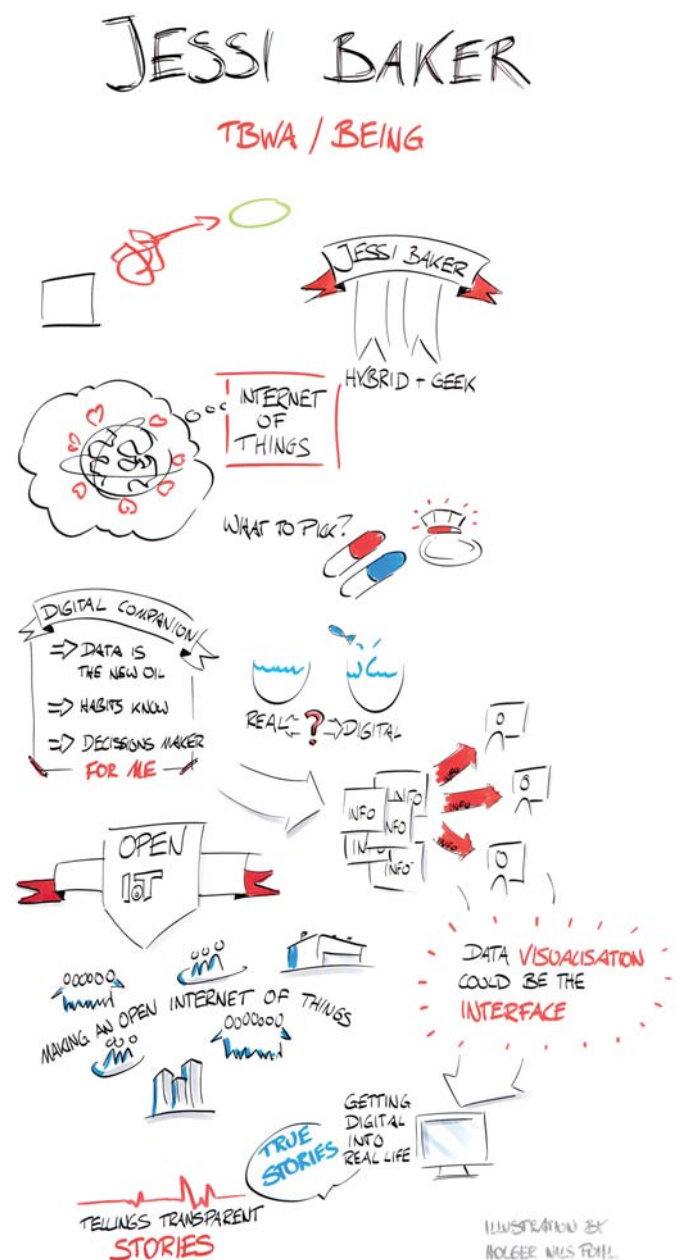 JESSI BAKER
TBWA / BEING
JESSI BAKER
HYBRID + GEEK
INTERNET
OF
THINGS
WHAT TO PICK?
DIGITAL COMPANION
=> DATA IS
THE NEW OIL
=> HABITS KNOW
=> DECISSIONS MAKER
FOR ME
REAL <- ? -> DIGITAL
INFO
INFO
INFO
INFO
INFO
INFO
INFO
INFO
OPEN
IOT
MAKING AN OPEN INTERNET OF THINGS
DATA VISUALISATION
COULD BE THE
INTERFACE
GETTING
DIGITAL
INTO
REAL LIFE
TRUE
STORIES
TELLINGS TRANSPARENT
STORIES
ILLUSTRATION BY
HOLGER NILS POHL